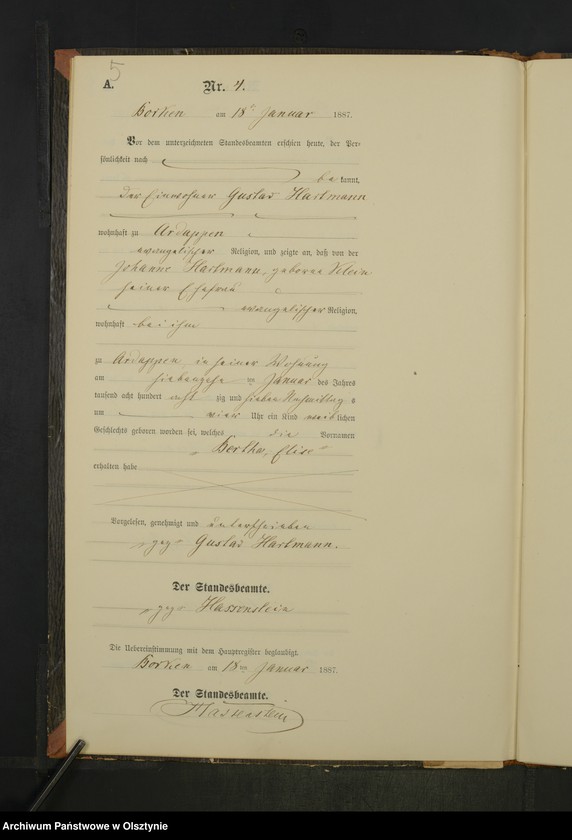 A.
5
Nr. 4.
Borken am 18ten Januar 1887.
Vor dem unterzeichneten Standesbeamten erschien heute, der Per-
sönlichkeit nach
be kannt,
der Einwohner Gustav Hartmann
wohnhaft zu Ardappen
evangelischer Religion, und zeigte an, daß von der
Johanne Hartmann, geborene Klein
seiner Ehefrau
evangelischer Religion,
wohnhaft bei ihm
zu Ardappen, in seiner Wohnung
am siebenzehn ten Januar des Jahres
tausend acht hundert acht zig und sieben Nachmittags
um vier Uhr ein Kind weib lichen
Geschlechts geboren worden sei, welches die Vornamen
„Bertha, Elise“
erhalten habe
Vorgelesen, genehmigt und unterschrieben
gez. Gustav Hartmann.
Der Standesbeamte.
gez. Hassenstein
Die Uebereinstimmung mit dem Hauptregister beglaubigt.
Borken am 18ten Januar 1887.
Der Standesbeamte.
Hassenstein
Archiwum Państwowe w Olsztynie